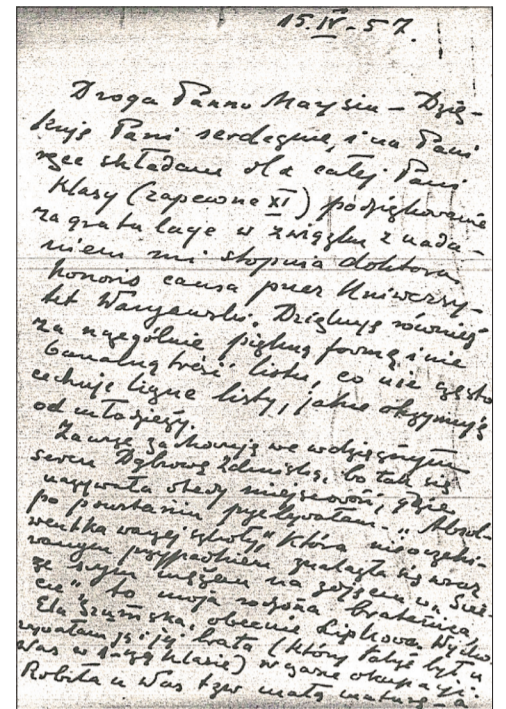 15.IV-57.
Droga Panno Marysiu – Dzię-
kuję Pani serdecznie, i na Pani
ręce składam dla całej Pani
Klasy (zapewne XI) podziękowanie
za gratulacje w związku z nada-
niem mi stopnia doktora
honoris causa przez Uniwersy-
tet Warszawski. Dziękuję również
za szczególnie piękną formę i nie
banalną treść listu, co nie często
cechuje liczne listy, jakie otrzymuję
od młodzieży.
Zawsze zachowuję we wdzięcznym
sercu Dąbrowę Zduńską, bo tak się
nazywała wtedy miejscowość, gdzie
po powstaniu przebywałam. „Absol-
wentka waszej szkoły", która nieoczeki-
wanym przypadkiem znalazła się wraz
ze swym mężem na zdjęciu w „Świe-
cie" to moja rodzona bratanica,
Ela Szumska, obecnie Lipkowa. Wycho-
wywałam ją i jej brata (który także był u
Was w klasie) w czasie okupacji.
Robiła u Was tzw małą maturę – a